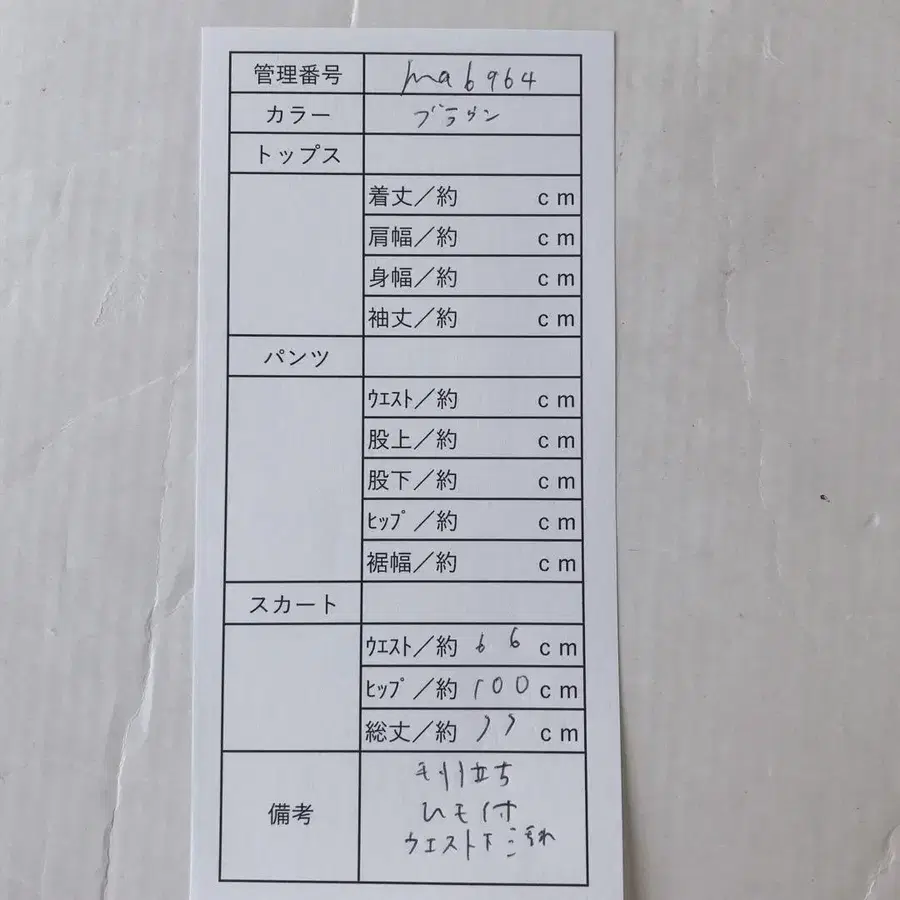 管理番号 ma6964
カラー ブラウン
トップス
着丈／約 cm
肩幅／約 cm
身幅／約 cm
袖丈／約 cm
パンツ
ウエスト／約 cm
股上／約 cm
股下／約 cm
ヒップ／約 cm
裾幅／約 cm
スカート
ウエスト／約 66 cm
ヒップ／約 100 cm
総丈／約 77 cm
備考
毛羽立ち
ひも付
ウエスト下 汚れ